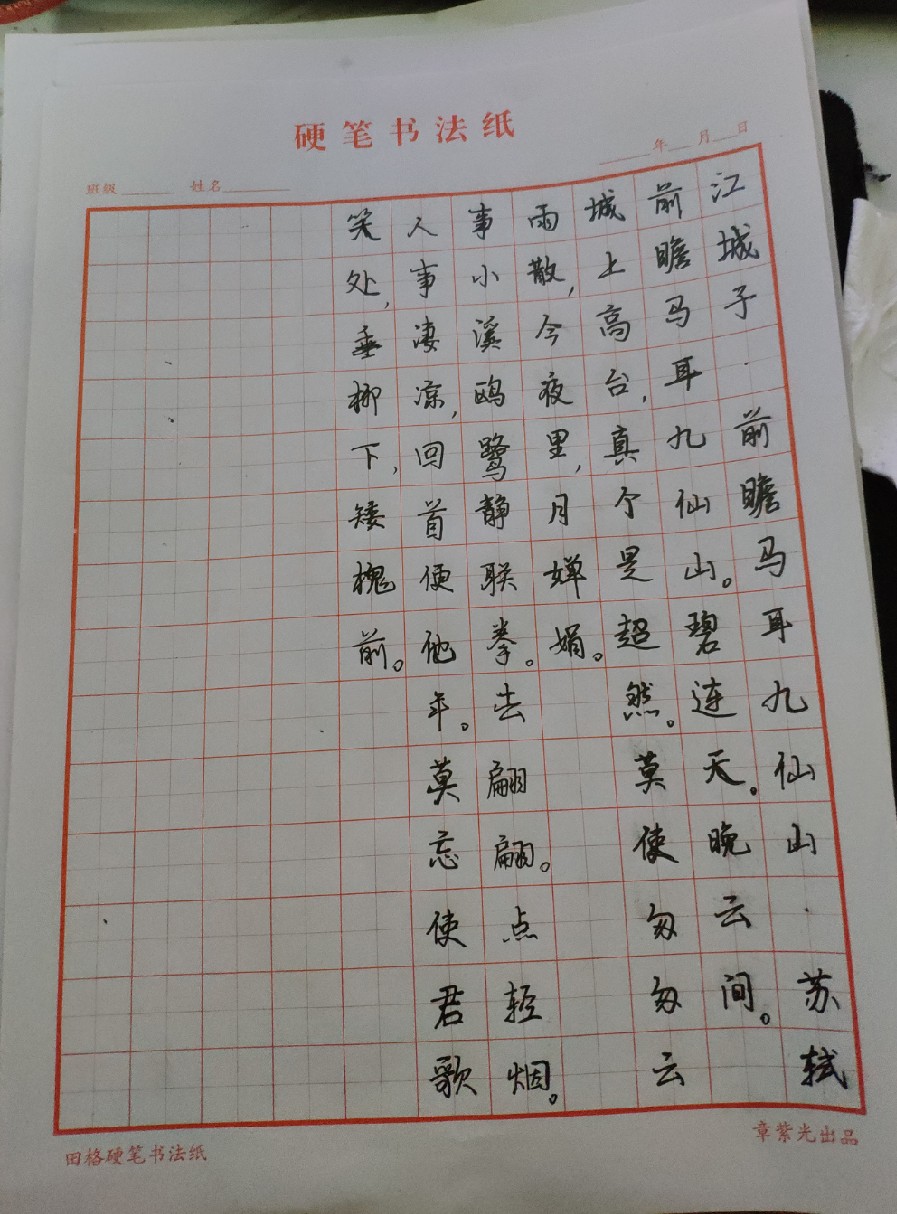 硬笔书法纸
班级 姓名 年 月 日
江城子·前瞻马耳九仙山·苏轼
前瞻马耳九仙山。碧连天。晚云间。
城上高台,真个是超然。莫使匆匆云
雨散,今夜里,月婵娟。
事小溪鸥鹭静联拳。去翩翩。点轻烟。
人事凄凉,回首便他年。莫忘使君歌
笑处,垂柳下,矮槐前。
田格硬笔书法纸
章紫光出品